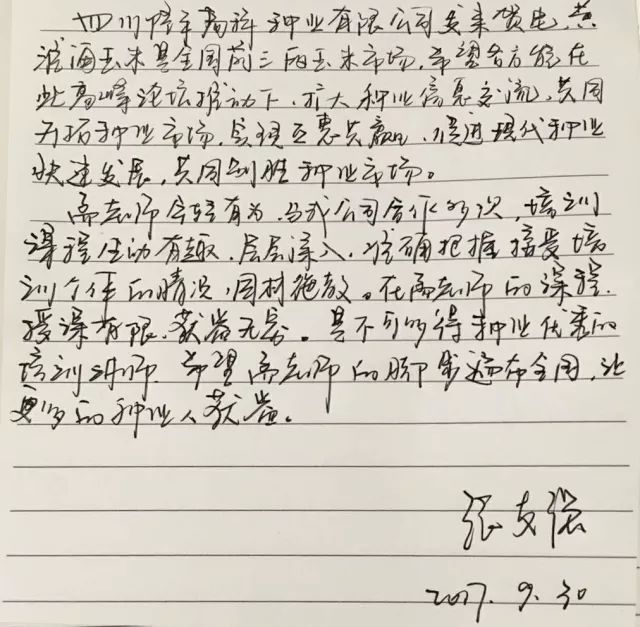 四川 科种业有限公司发来贺电,黄
淮海玉米是全国前三的玉米市场,希望各方能在
此高峰论坛推动下,扩大种业信息交流,共同
开拓种业市场,实现互惠共赢,促进现代种业
快速发展,共同制胜种业市场。
高老师年轻有为,与我公司合作多次,培训
课程生动有趣,层层深入,准确把握接受培
训个体的情况,因材施教。在高老师的课程,
授课有限,获益无穷。是不可多得种业优秀的
培训讲师 希望高老师的脚步遍布全国,让
更多的种业人获益。
张友强
2017.9.30